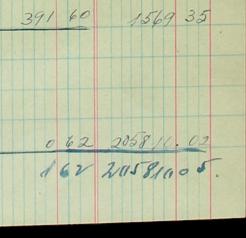 391 60 1569 35
0 62 205810.02
162 20581005.